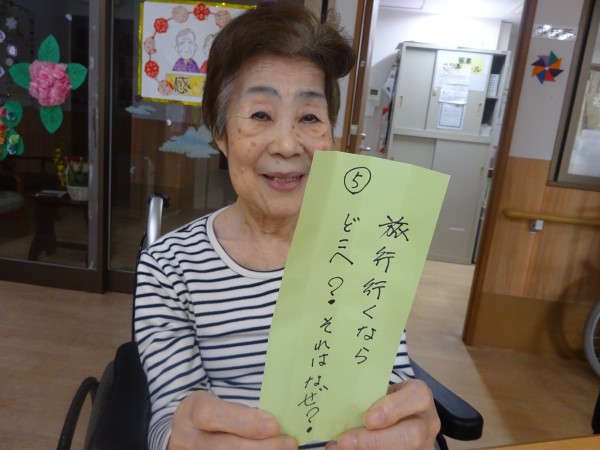 ⑤ 旅行行くなら
どこへ？それはなぜ？
感